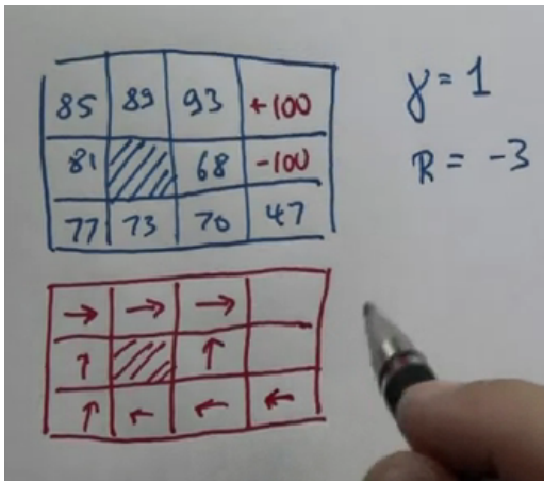 85 89 93 +100
81 68 -100
77 73 70 47
γ = 1
R = -3
→ → →
↑ ↑
↑ ← ← ←